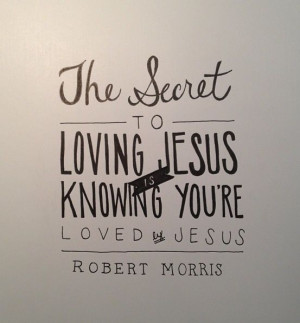 The Secret
TO
LOVING JESUS
IS
KNOWING YOU'RE
LOVED by JESUS
ROBERT MORRIS